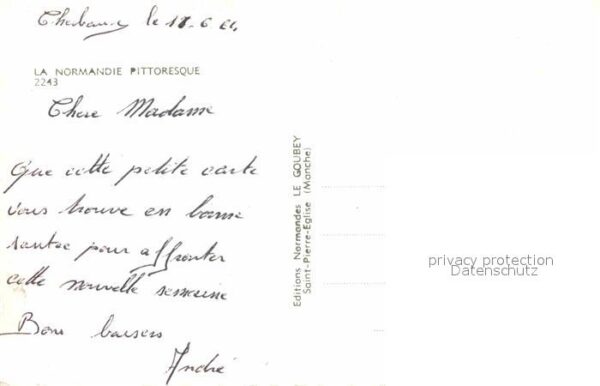 Cherbourg le 18.6.64
LA NORMANDIE PITTORESQUE
2243
Chere Madame
Que cette petite carte
vous trouve en bonne
santée pour affronter
cette nouvelle semaine
Bons baisers
André
Editions Normandes LE GOUBEY
Saint-Pierre-Eglise (Manche)
privacy protection
Datenschutz